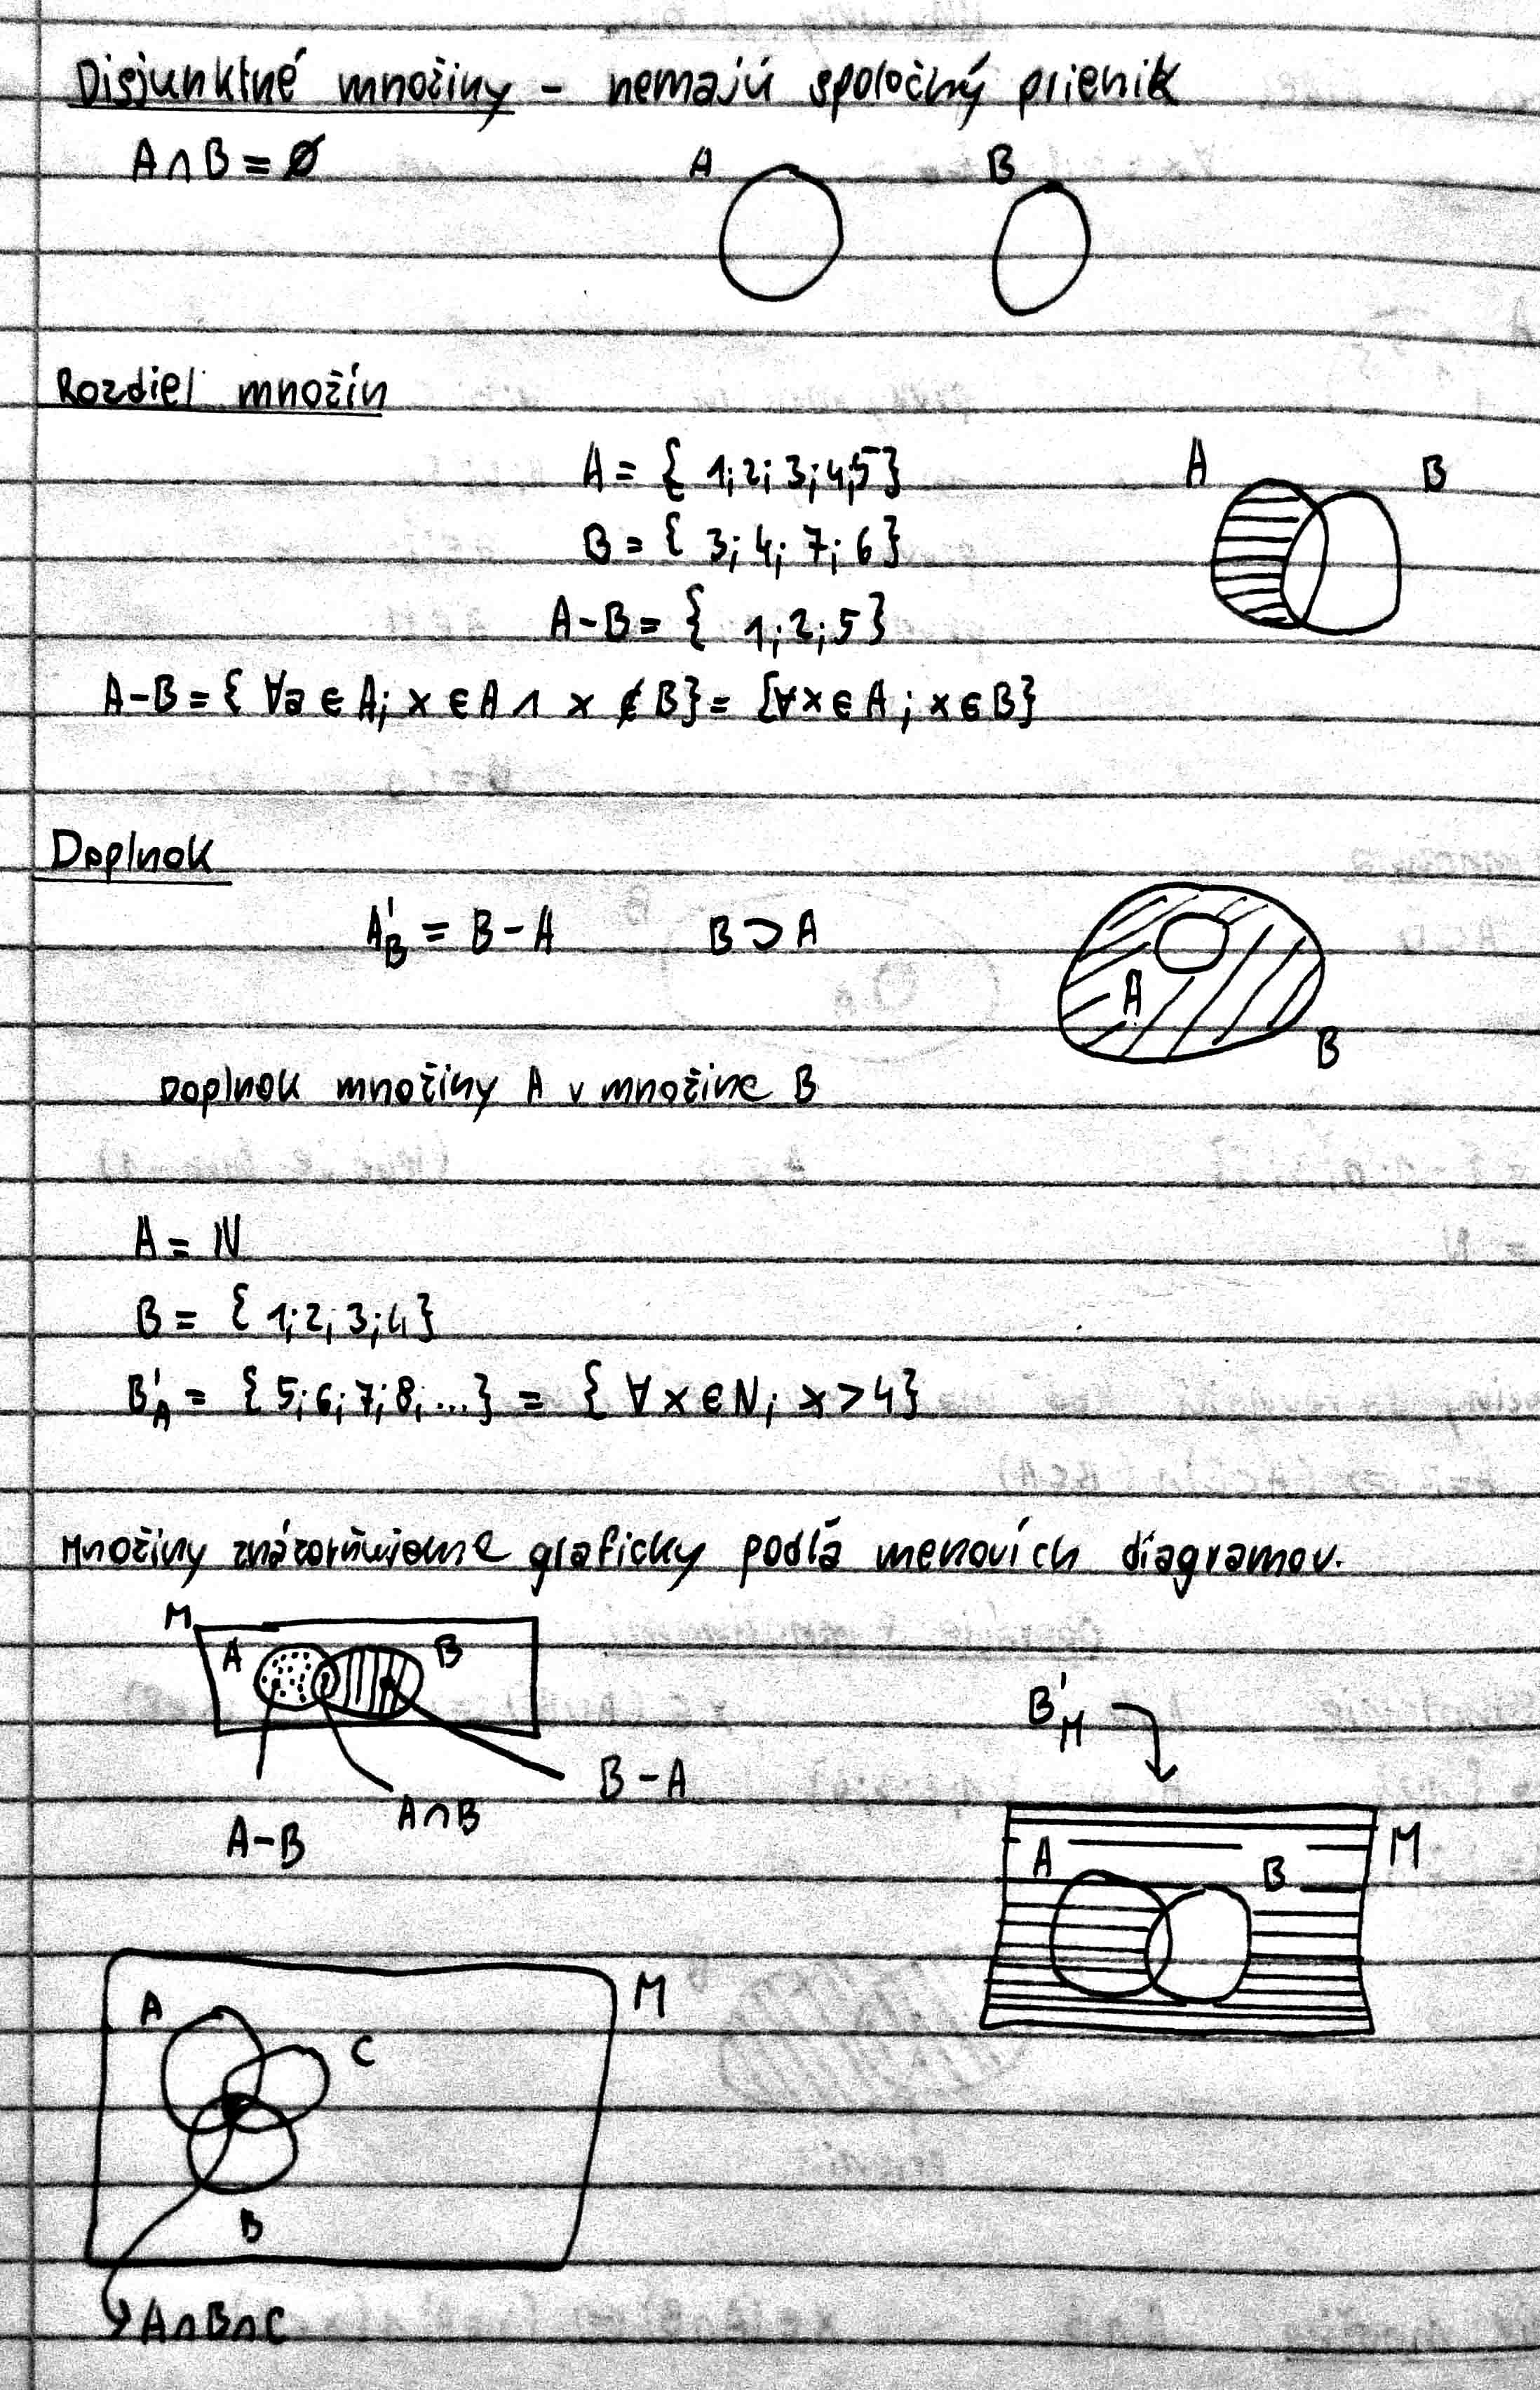 Disjunktné množiny - nemajú spoločný prienik
A∩B = Ø
A B
Rozdiel množín
A = { 1; 2; 3; 4; 5}
A B
B = { 3; 4; 7; 6}
A-B = { 1; 2; 5}
A-B = { ∀a ∈ A; x ∈ A ∧ x ∉ B} = {∀x ∈ A; x ∈ B}
Doplnok
A'B = B - A B ⊃ A
A
B
Doplnok množiny A v množine B
A = N
B = { 1; 2, 3; 4}
B'A = { 5; 6; 7; 8; ...} = { ∀x ∈ N; x > 4}
Množiny znázorňujeme graficky podľa menovích diagramov.
M
A B
B'M
B - A
A∩B
A-B
M
A B
A
M
C
B
A∩B∩C